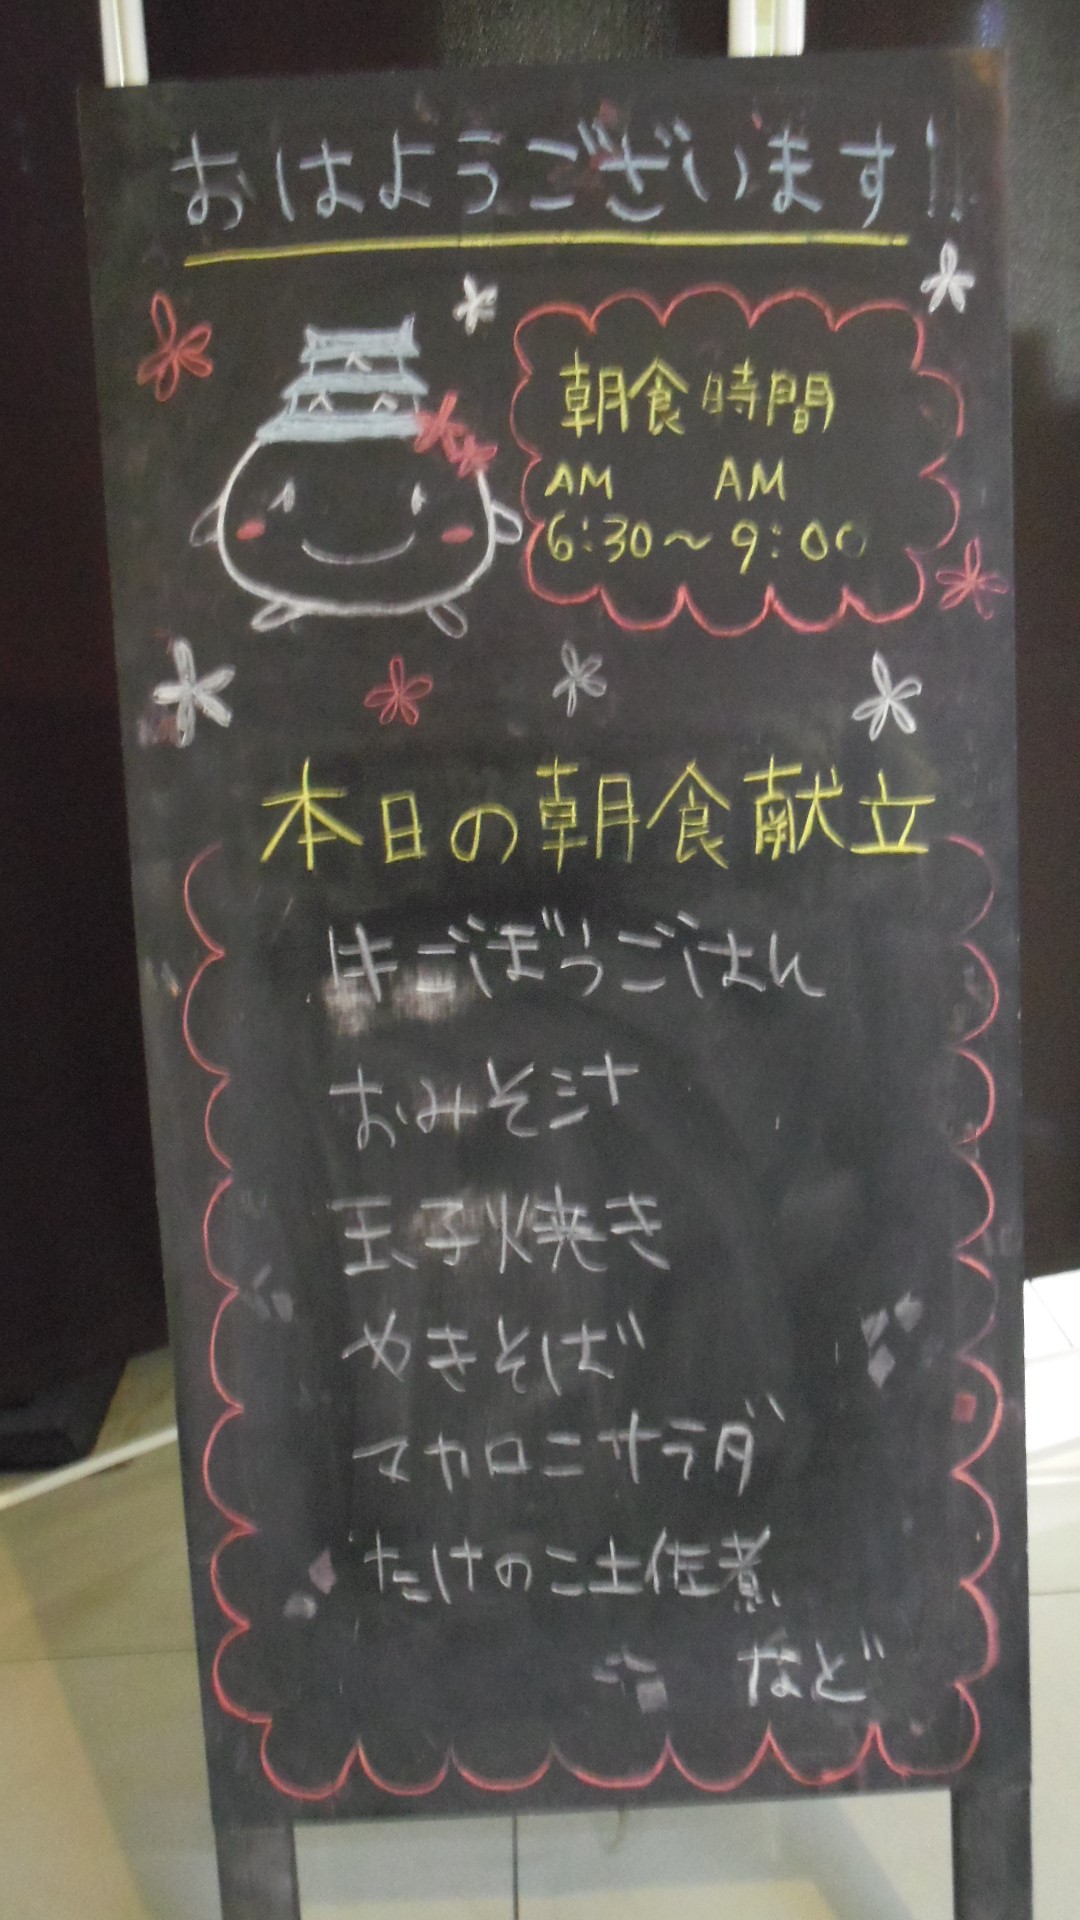 おはようございます!
朝食時間
AM AM
6:30～9:00
本日の朝食献立
ごぼうごはん
おみそ汁
玉子焼き
やきそば
マカロニサラダ
たけのこ土佐煮
など